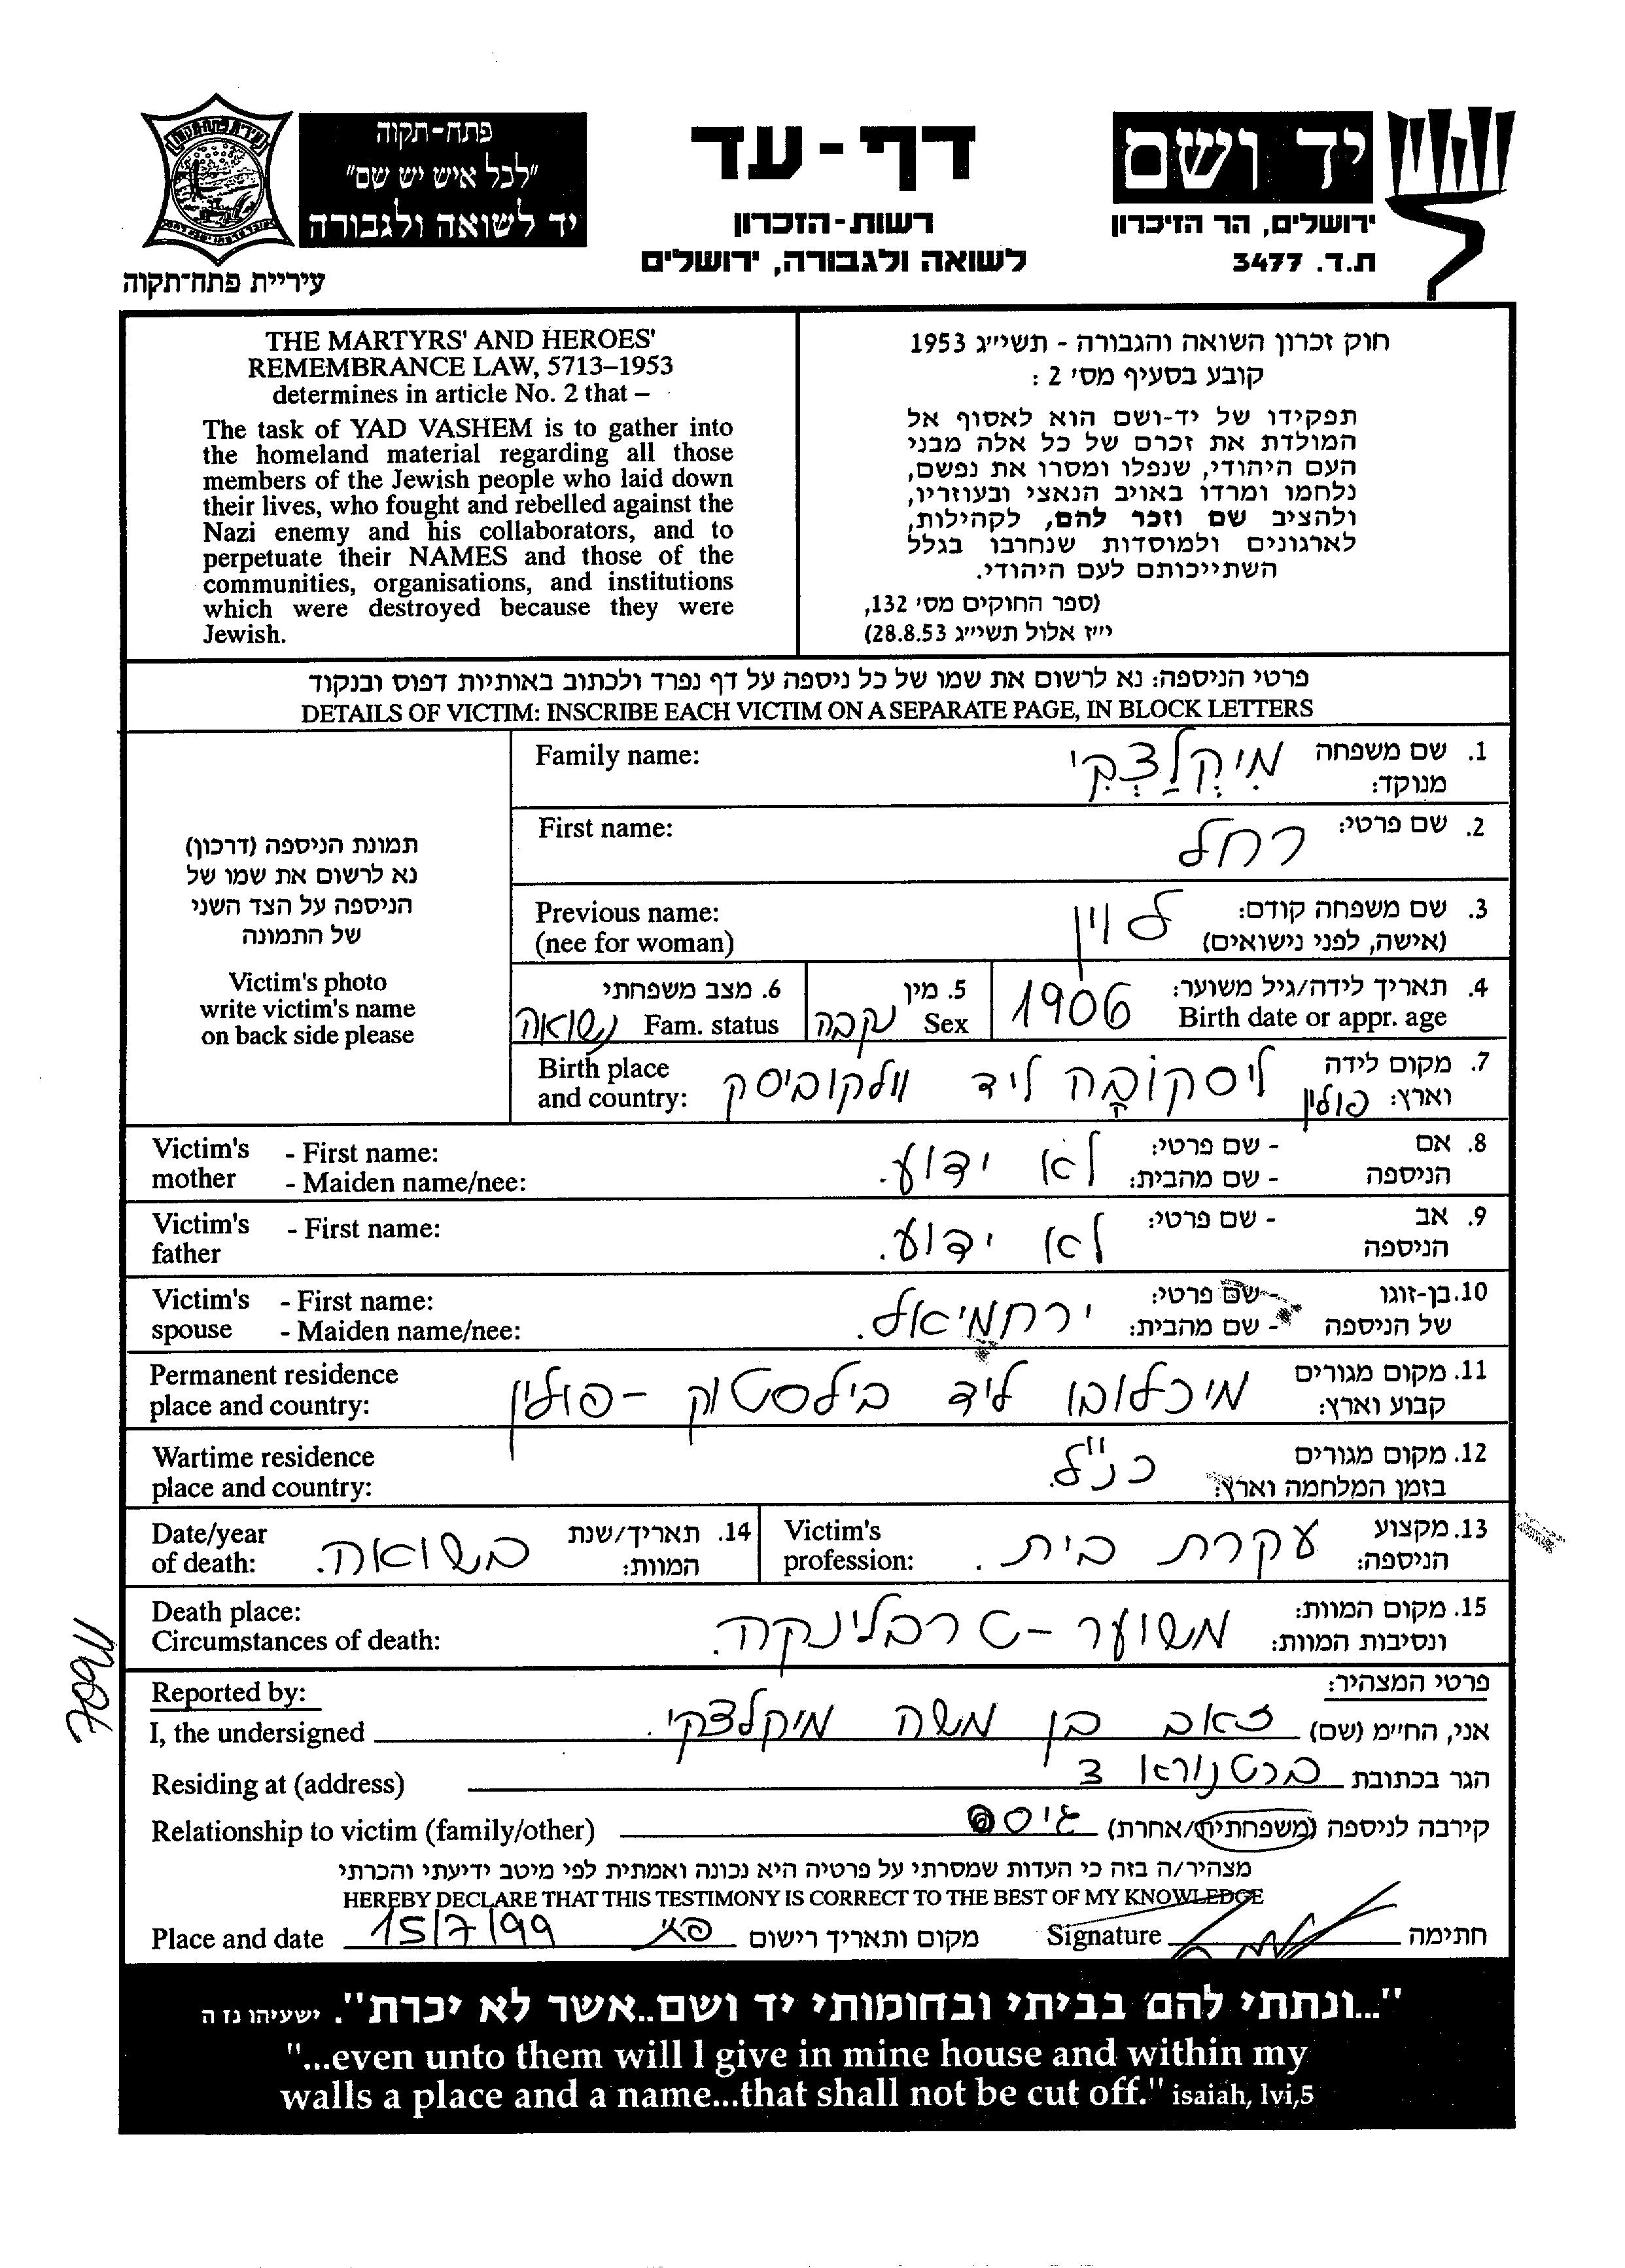 פתח-תקוה
"לכל איש יש שם"
יד לשואה ולגבורה
עיריית פתח-תקוה
דף - עד
רשות-הזכרון
לשואה ולגבורה, ירושלים
יד ושם
ירושלים, הר הזיכרון
ת.ד. 3477
THE MARTYRS' AND HEROES'
REMEMBRANCE LAW, 5713–1953
determines in article No. 2 that –
The task of YAD VASHEM is to gather into
the homeland material regarding all those
members of the Jewish people who laid down
their lives, who fought and rebelled against the
Nazi enemy and his collaborators, and to
perpetuate their NAMES and those of the
communities, organisations, and institutions
which were destroyed because they were
Jewish.
חוק זכרון השואה והגבורה - תשי״ג 1953
קובע בסעיף מס׳ 2 :
תפקידו של יד-ושם הוא לאסוף אל
המולדת את זכרם של כל אלה מבני
העם היהודי, שנפלו ומסרו את נפשם,
נלחמו ומרדו באויב הנאצי ובעוזריו,
ולהציב שם וזכר להם, לקהילות,
לארגונים ולמוסדות שנחרבו בגלל
השתייכותם לעם היהודי.
(ספר החוקים מס׳ 132,
י״ז אלול תשי״ג 28.8.53)
פרטי הניספה: נא לרשום את שמו של כל ניספה על דף נפרד ולכתוב באותיות דפוס ובנקוד
DETAILS OF VICTIM: INSCRIBE EACH VICTIM ON A SEPARATE PAGE, IN BLOCK LETTERS
תמונת הניספה (דרכון)
נא לרשום את שמו של
הניספה על הצד השני
של התמונה
Victim's photo
write victim's name
on back side please
1. שם משפחה מִיקְלַצְקִי Family name:
מנוקד:
2. שם פרטי: רחל First name:
3. שם משפחה קודם: לוין Previous name:
(אישה, לפני נישואים) (nee for woman)
4. תאריך לידה/גיל משוער: 1906 5. מין 6. מצב משפחתי
Birth date or appr. age Sex נקבה Fam. status נשואה
7. מקום לידה ליסקוֹבָה ליד וולקוביסק Birth place
וארץ: פולין and country:
8. אם - שם פרטי: לא ידוע. Victim's - First name:
הניספה - שם מהבית: mother - Maiden name/nee:
9. אב - שם פרטי: לא ידוע. Victim's - First name:
הניספה father
10. בן-זוגו - שם פרטי: ירחמיאל. Victim's - First name:
של הניספה - שם מהבית: spouse - Maiden name/nee:
11. מקום מגורים מיכלובו ליד בילסטוק - פולין Permanent residence
קבוע וארץ: place and country:
12. מקום מגורים כנ"ל. Wartime residence
בזמן המלחמה וארץ: place and country:
13. מקצוע עקרת בית. Victim's
הניספה: profession:
14. תאריך/שנת בשואה. Date/year
המוות: of death:
15. מקום המוות: משוער - טרבלינקה. Death place:
ונסיבות המוות: Circumstances of death:
פרטי המצהיר: Reported by:
אני, החי״מ (שם) זאב בן משה מיקלצקי. I, the undersigned
הגר בכתובת ברטנורא 3 Residing at (address)
קירבה לניספה (משפחתית/אחרת) גיס Relationship to victim (family/other)
מצהיר/ה בזה כי העדות שמסרתי על פרטיה היא נכונה ואמתית לפי מיטב ידיעתי והכרתי
HEREBY DECLARE THAT THIS TESTIMONY IS CORRECT TO THE BEST OF MY KNOWLEDGE
חתימה Signature מקום ותאריך רישום פ"ת 15/7/99 Place and date
"...ונתתי להם בביתי ובחומותי יד ושם..אשר לא יכרת". ישעיהו נז ה
"...even unto them will I give in mine house and within my
walls a place and a name...that shall not be cut off." isaiah, lvi,5